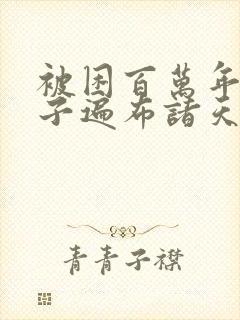 被困百萬年
子遍布諸天
青青子襟